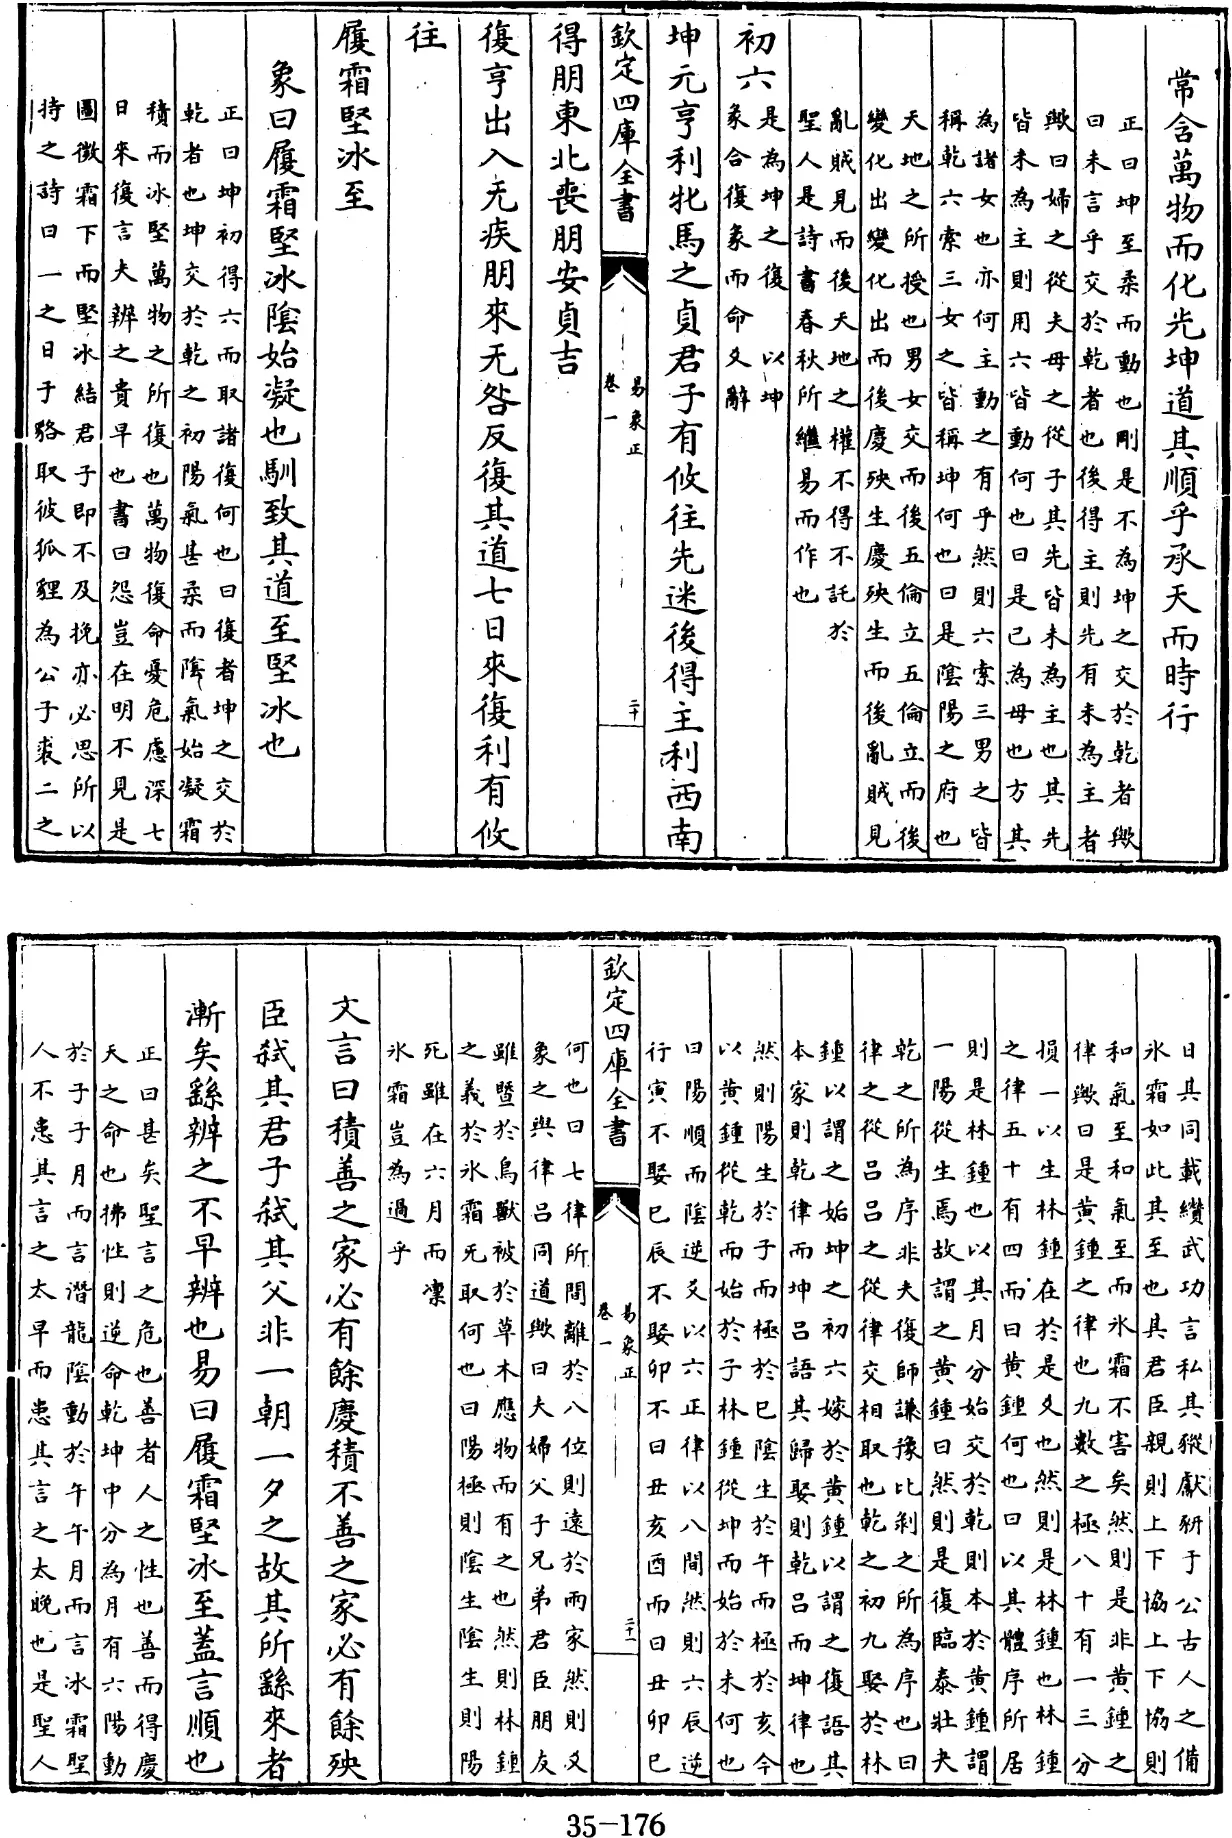 常含萬物而化光坤道其順乎承天而時行
正曰坤至柔而動也剛是不為坤之交於乾者歟
曰未言乎交於乾者也後得主則先有未為主者
歟曰婦之從夫母之從子其先皆未為主也其先
皆未為主則用六皆動何也曰是已為母也方其
為諸女也亦何主動之有乎然則六索三男之皆
稱乾六索三女之皆稱坤何也曰是陰陽之府也
天地之所授也男女交而後五倫立五倫立而後
變化出變化出而後慶殃生慶殃生而後亂賊見
亂賊見而後天地之權不得不託於
聖人是詩書春秋所繼易而作也
初六
是為坤之復以坤
彖合復彖而命爻辭
坤元亨利牝馬之貞君子有攸往先迷後得主利西南
欽定四庫全書
易象正
卷一
二十
得朋東北喪朋安貞吉
復亨出入无疾朋來无咎反復其道七日來復利有攸
往
履霜堅冰至
象曰履霜堅冰陰始凝也馴致其道至堅冰也
正曰坤初得六而取諸復何也曰復者坤之交於
乾者也坤交於乾之初陽氣甚柔而陰氣始凝霜
積而冰堅萬物之所復也萬物復命憂危慮深七
日來復言夫辨之貴早也書曰怨豈在明不見是
圖微霜下而堅冰結君子即不及挽亦必思所以
持之詩曰一之日于貉取彼狐貍為公子裘二之
日其同載纘武功言私其豵獻豜于公古人之備
氷霜如此其至也其君臣親則上下協上下協則
和氣至和氣至而氷霜不害矣然則是非黃鍾之
律歟曰是黃鍾之律也九數之極八十有一三分
損一以生林鍾在於是爻也然則是林鍾也林鍾
之律五十有四而曰黃鍾何也曰以其體序所居
則是林鍾也以其月分始交於乾則本於黃鍾謂
一陽從生焉故謂之黃鍾曰然則是復臨泰壯夬
乾之所為序非夫復師謙豫比剝之所為序也曰
律之從呂呂之從律交相取也乾之初九娶於林
鍾以謂之姤坤之初六嫁於黃鍾以謂之復語其
本家則乾律而坤呂語其歸娶則乾呂而坤律也
然則陽生於子而極於巳陰生於午而極於亥今
以黃鍾從乾而始於子林鍾從坤而始於未何也
曰陽順而陰逆爻以六正律以八間然則六辰逆
行寅不娶巳辰不娶卯不曰丑亥酉而曰丑卯巳
欽定四庫全書
易象正
卷一
二十一
何也曰七律所間離於八位則遠於而家然則爻
象之與律呂同道歟曰夫婦父子兄弟君臣朋友
雖暨於鳥獸被於草木應物而有之也然則林鍾
之義於氷霜无取何也曰陽極則陰生陰生則陽
死雖在六月而凜
氷霜豈為過乎
文言曰積善之家必有餘慶積不善之家必有餘殃
臣弒其君子弒其父非一朝一夕之故其所繇來者
漸矣繇辨之不早辨也易曰履霜堅冰至蓋言順也
正曰甚矣聖言之危也善者人之性也善而得慶
天之命也拂性則逆命乾坤中分為月有六陽動
於子子月而言潛龍陰動於午午月而言冰霜聖
人不患其言之太早而患其言之太晚也是聖人
35-176